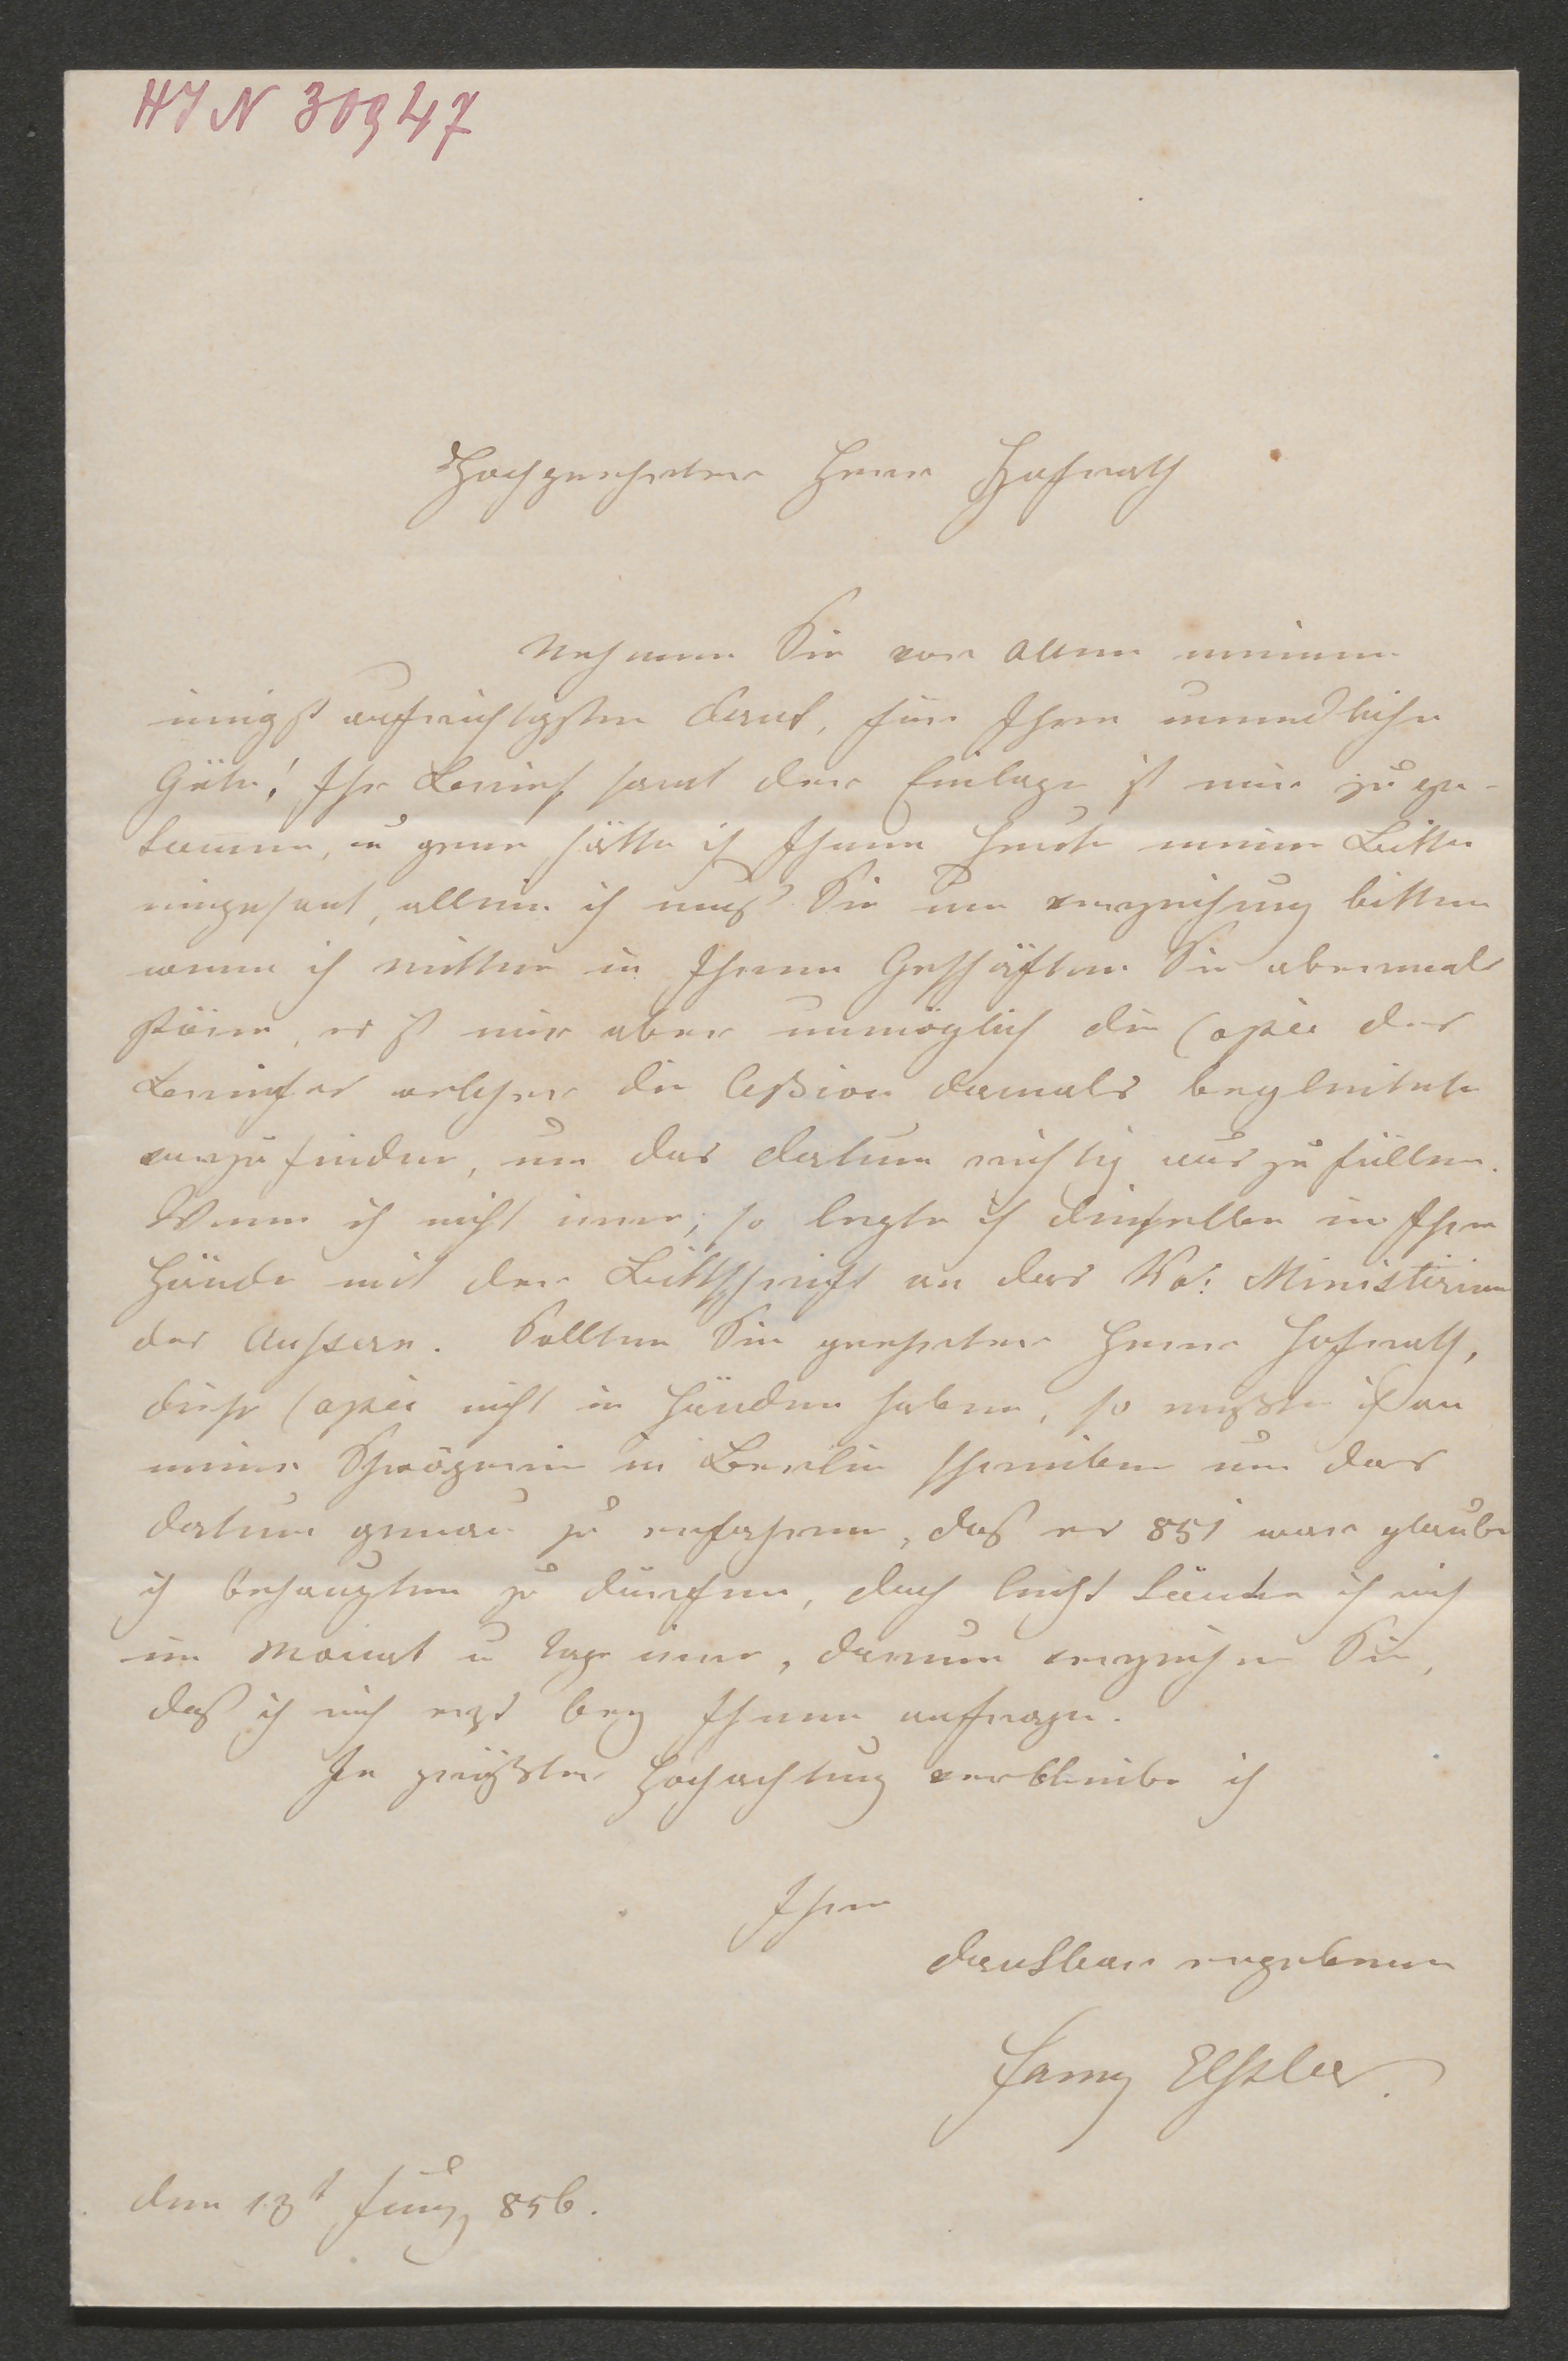 HIN 30947
Hochgeehrter Herr Hofrath
Nehmen Sie vor allem meinen
innigst aufrichtigsten Dank, für Ihre unendliche
Güte! Ihr Brief samt der Einlage ist mir zu ge-
komen, u gerne hätte ich Ihnen heute meine Bitte
eingesant, allein ich muß Sie um verzeihung bitten
wenn ich mitten in Ihren Geschäften Sie abermals
störe, es ist mir aber unmöglich die Copie des
Briefes welcher die Cession damals begleitete
vorzufinden, um das datum richtig aus zu füllen.
Wenn ich nicht irre, so legte ich dieselbe in Ihre
Hände mit der Bittschrift an das Ministerium
des Aussern. Sollten Sie geehrter Herr Hofrath,
diese Copie nicht in Händen haben, so müsste ich an
meine Schwägerin in Berlin schreiben um das
datum genau zu erfahren, daß es 851 war glaube
ich behaupten zu dürfen, doch leicht könte ich mich
im Monat u Tage irren, darum verzeihen Sie,
daß ich mich erst bey Ihnen anfrage.
In grösster Hochachtung verbleibe ich
Ihre
dankbar ergebene
Fanny Elssler.
den 13t Juny 856.